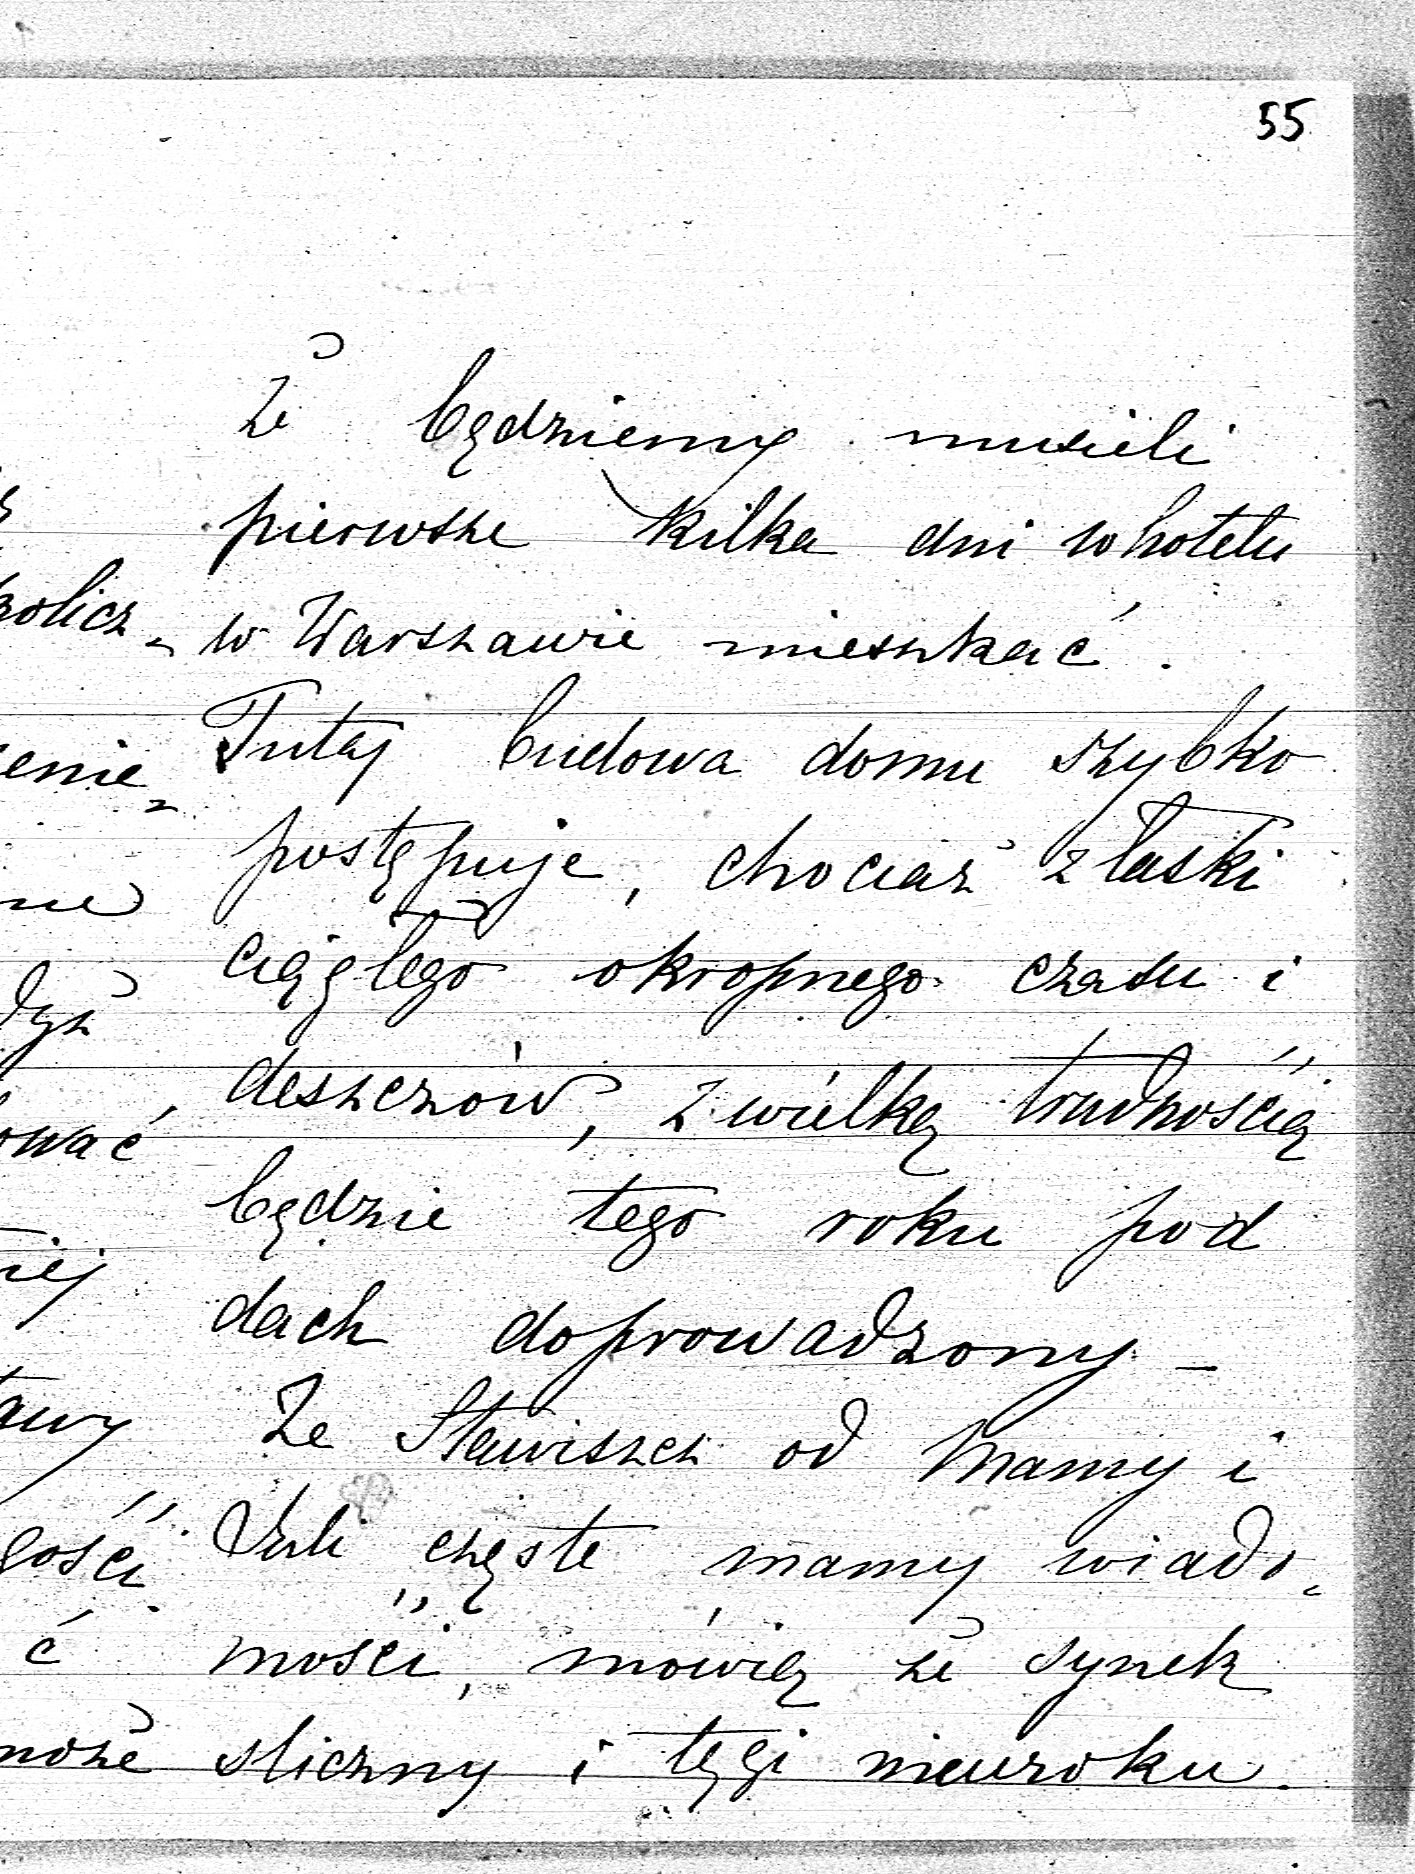 55
że będziemy musieli
pierwsze kilka dni w hotelu
w Warszawie mieszkać.
Tutaj budowa domu szybko
postępuje, chociaż z łaski
ciągłego okropnego czasu i
deszczów, z wielką trudnością
będzie tego roku pod
dach doprowadzony –
Ze Stawiszcz od Mamy i
częste mamy wiado-
mości, mówią że synek
sliczny i tęgi nieuroku.
olicz-
enie-
ować
iej
awy
gości
ć
może